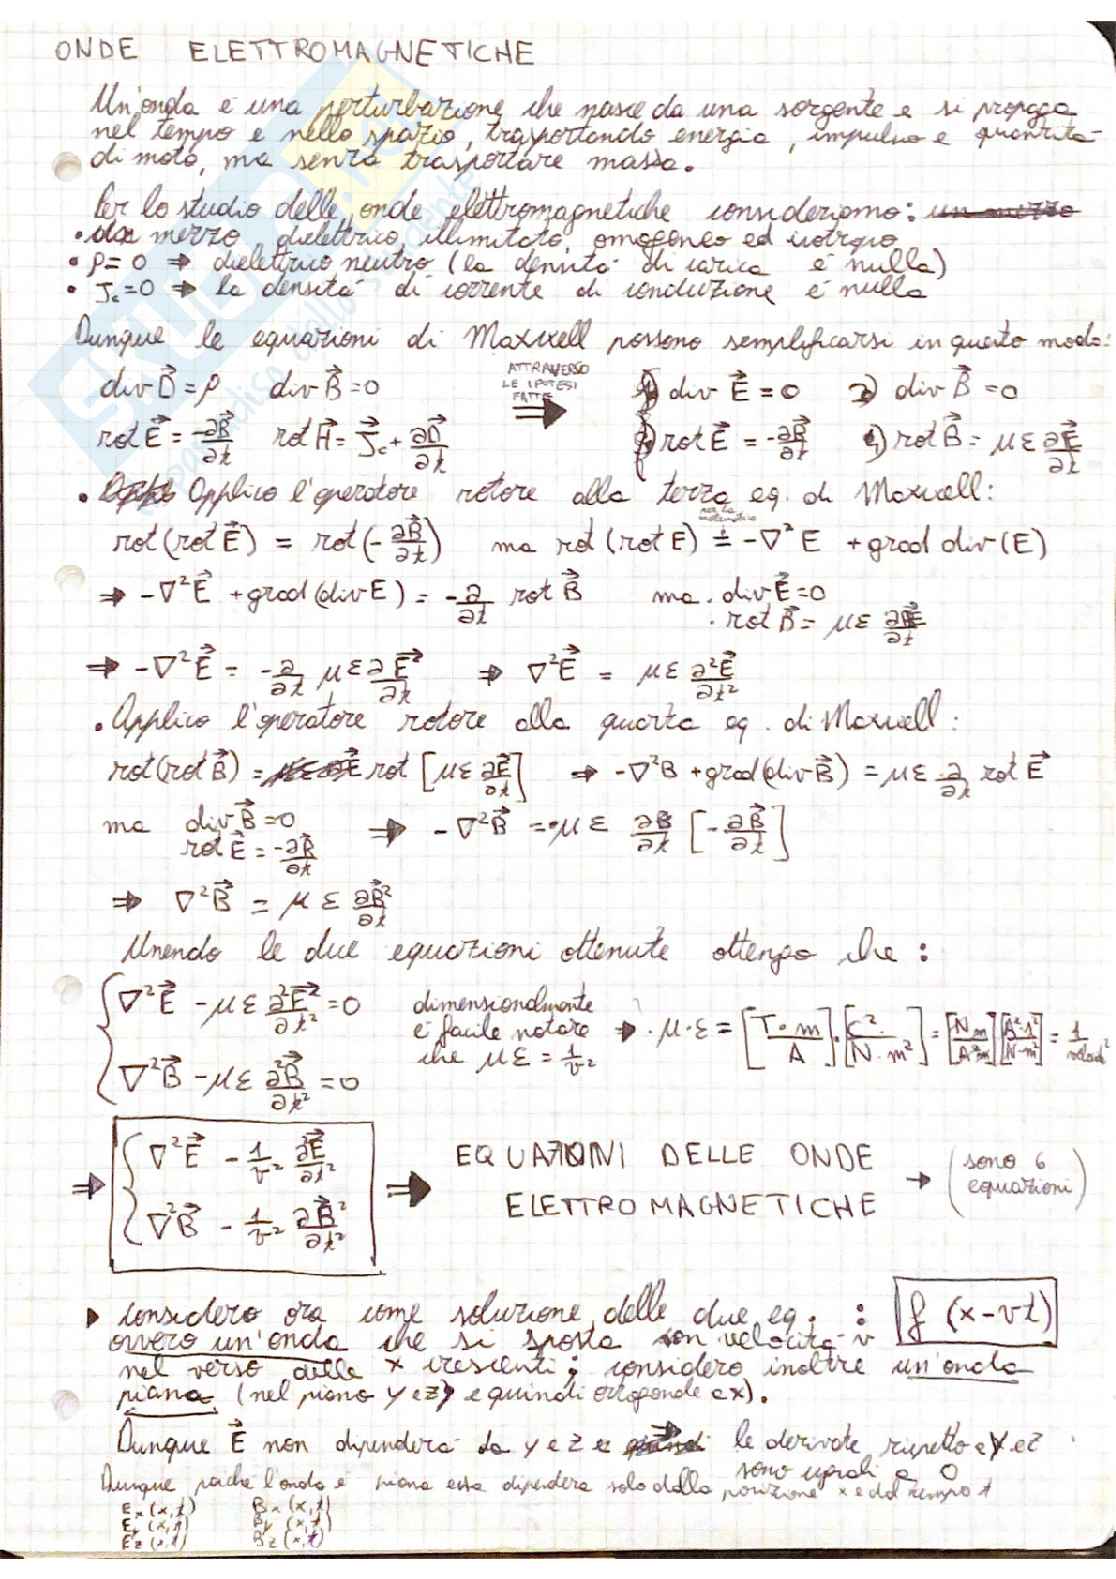 ONDE ELETTROMAGNETICHE
Un'onda è una perturbazione che nasce da una sorgente e si propaga
nel tempo e nello spazio, trasportando energia, impulso e quantità
di moto, ma senza trasportare massa.
Per lo studio delle onde elettromagnetiche consideriamo: un mezzo
• mezzo dielettrico, illimitato, omogeneo ed isotropo
• ρ = 0 ⇒ dielettrico neutro (la densità di carica è nulla)
• Jc = 0 ⇒ la densità di corrente di conduzione è nulla
Dunque le equazioni di Maxwell possono semplificarsi in questo modo:
div D⃗ = ρ   div B⃗ = 0   ATTRAVERSO LE IPOTESI FATTE ⇒   div E⃗ = 0   2) div B⃗ = 0
rot E⃗ = -∂B⃗/∂t   rot H⃗ = J⃗c + ∂D⃗/∂t   rot E⃗ = -∂B⃗/∂t   4) rot B⃗ = με ∂E⃗/∂t
• Applico l'operatore rotore alla terza eq. di Maxwell:
rot (rot E⃗) = rot (-∂B⃗/∂t)   ma rot (rot E) = -∇² E + grad div (E)
⇒ -∇²E⃗ + grad (div E) = -∂/∂t rot B⃗   ma · div E⃗ = 0
· rot B⃗ = με ∂E⃗/∂t
⇒ -∇²E⃗ = -∂/∂t με ∂E⃗/∂t ⇒ ∇²E⃗ = με ∂²E⃗/∂t²
• Applico l'operatore rotore alla quarta eq. di Maxwell:
rot (rot B⃗) = rot [με ∂E⃗/∂t] ⇒ -∇²B + grad (div B⃗) = με ∂/∂t rot E⃗
ma div B⃗ = 0
rot E⃗ = -∂B⃗/∂t ⇒ -∇²B⃗ = με ∂B/∂t [-∂B⃗/∂t]
⇒ ∇²B⃗ = με ∂B⃗²/∂t
Unendo le due equazioni ottenute ottengo che:
∇²E⃗ - με ∂²E⃗/∂t² = 0   dimensionalmente è facile notare che με = 1/v² ⇒ · μ·ε = [T·m/A]·[C²/N·m²] = [N m/A² m][A²·s²/N·m²] = 1/veloc²
∇²B⃗ - με ∂²B⃗/∂t² = 0
⇒ ∇²E⃗ - 1/v² ∂²E⃗/∂t² ⇒ EQUAZIONI DELLE ONDE → (sono 6 equazioni)
∇²B⃗ - 1/v² ∂B⃗²/∂t² ELETTROMAGNETICHE
▸ Considero ora come soluzione delle due eq. : f (x-vt)
ovvero un'onda che si sposta con velocità v
nel verso delle x crescenti; considero inoltre un'onda
piana (nel piano y e z) e quindi ortogonale a x).
Dunque E⃗ non dipenderà da y e z e quindi le derivate rispetto a y e z
sono uguali a 0
Dunque poiché l'onda è piana essa dipenderà solo dalla posizione x e dal tempo t
Ex (x,t)   Bx (x,t)
Ey (x,t)   By (x,t)
Ez (x,t)   Bz (x,t)